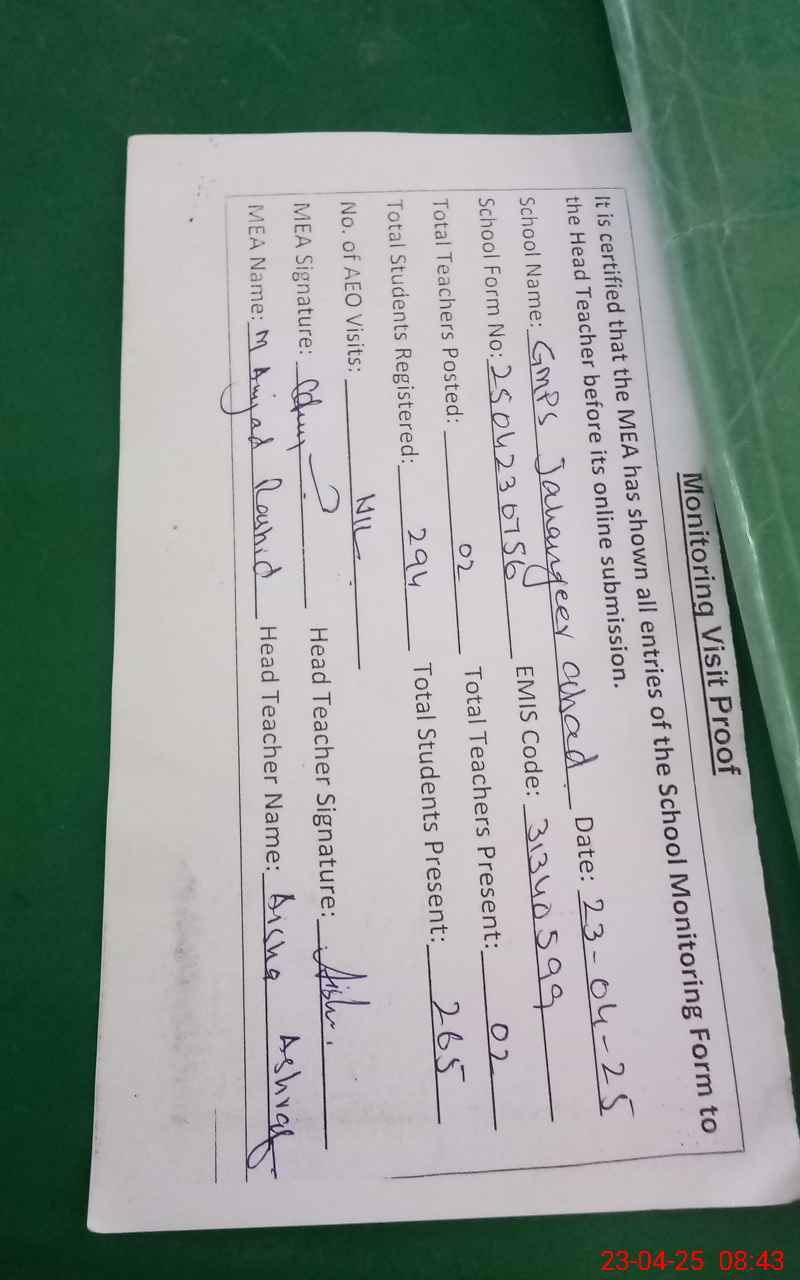 Monitoring Visit Proof
It is certified that the MEA has shown all entries of the School Monitoring Form to
the Head Teacher before its online submission.
School Name: GMPS Jahangeer abad Date: 23-04-25
School Form No: 2504230756 EMIS Code: 31340599
Total Teachers Posted: 02 Total Teachers Present: 02
Total Students Registered: 294 Total Students Present: 265
No. of AEO Visits: NIL
MEA Signature: Head Teacher Signature:
MEA Name: M Amjad Rashid Head Teacher Name: Aisha Ashraf
23-04-25 08:43